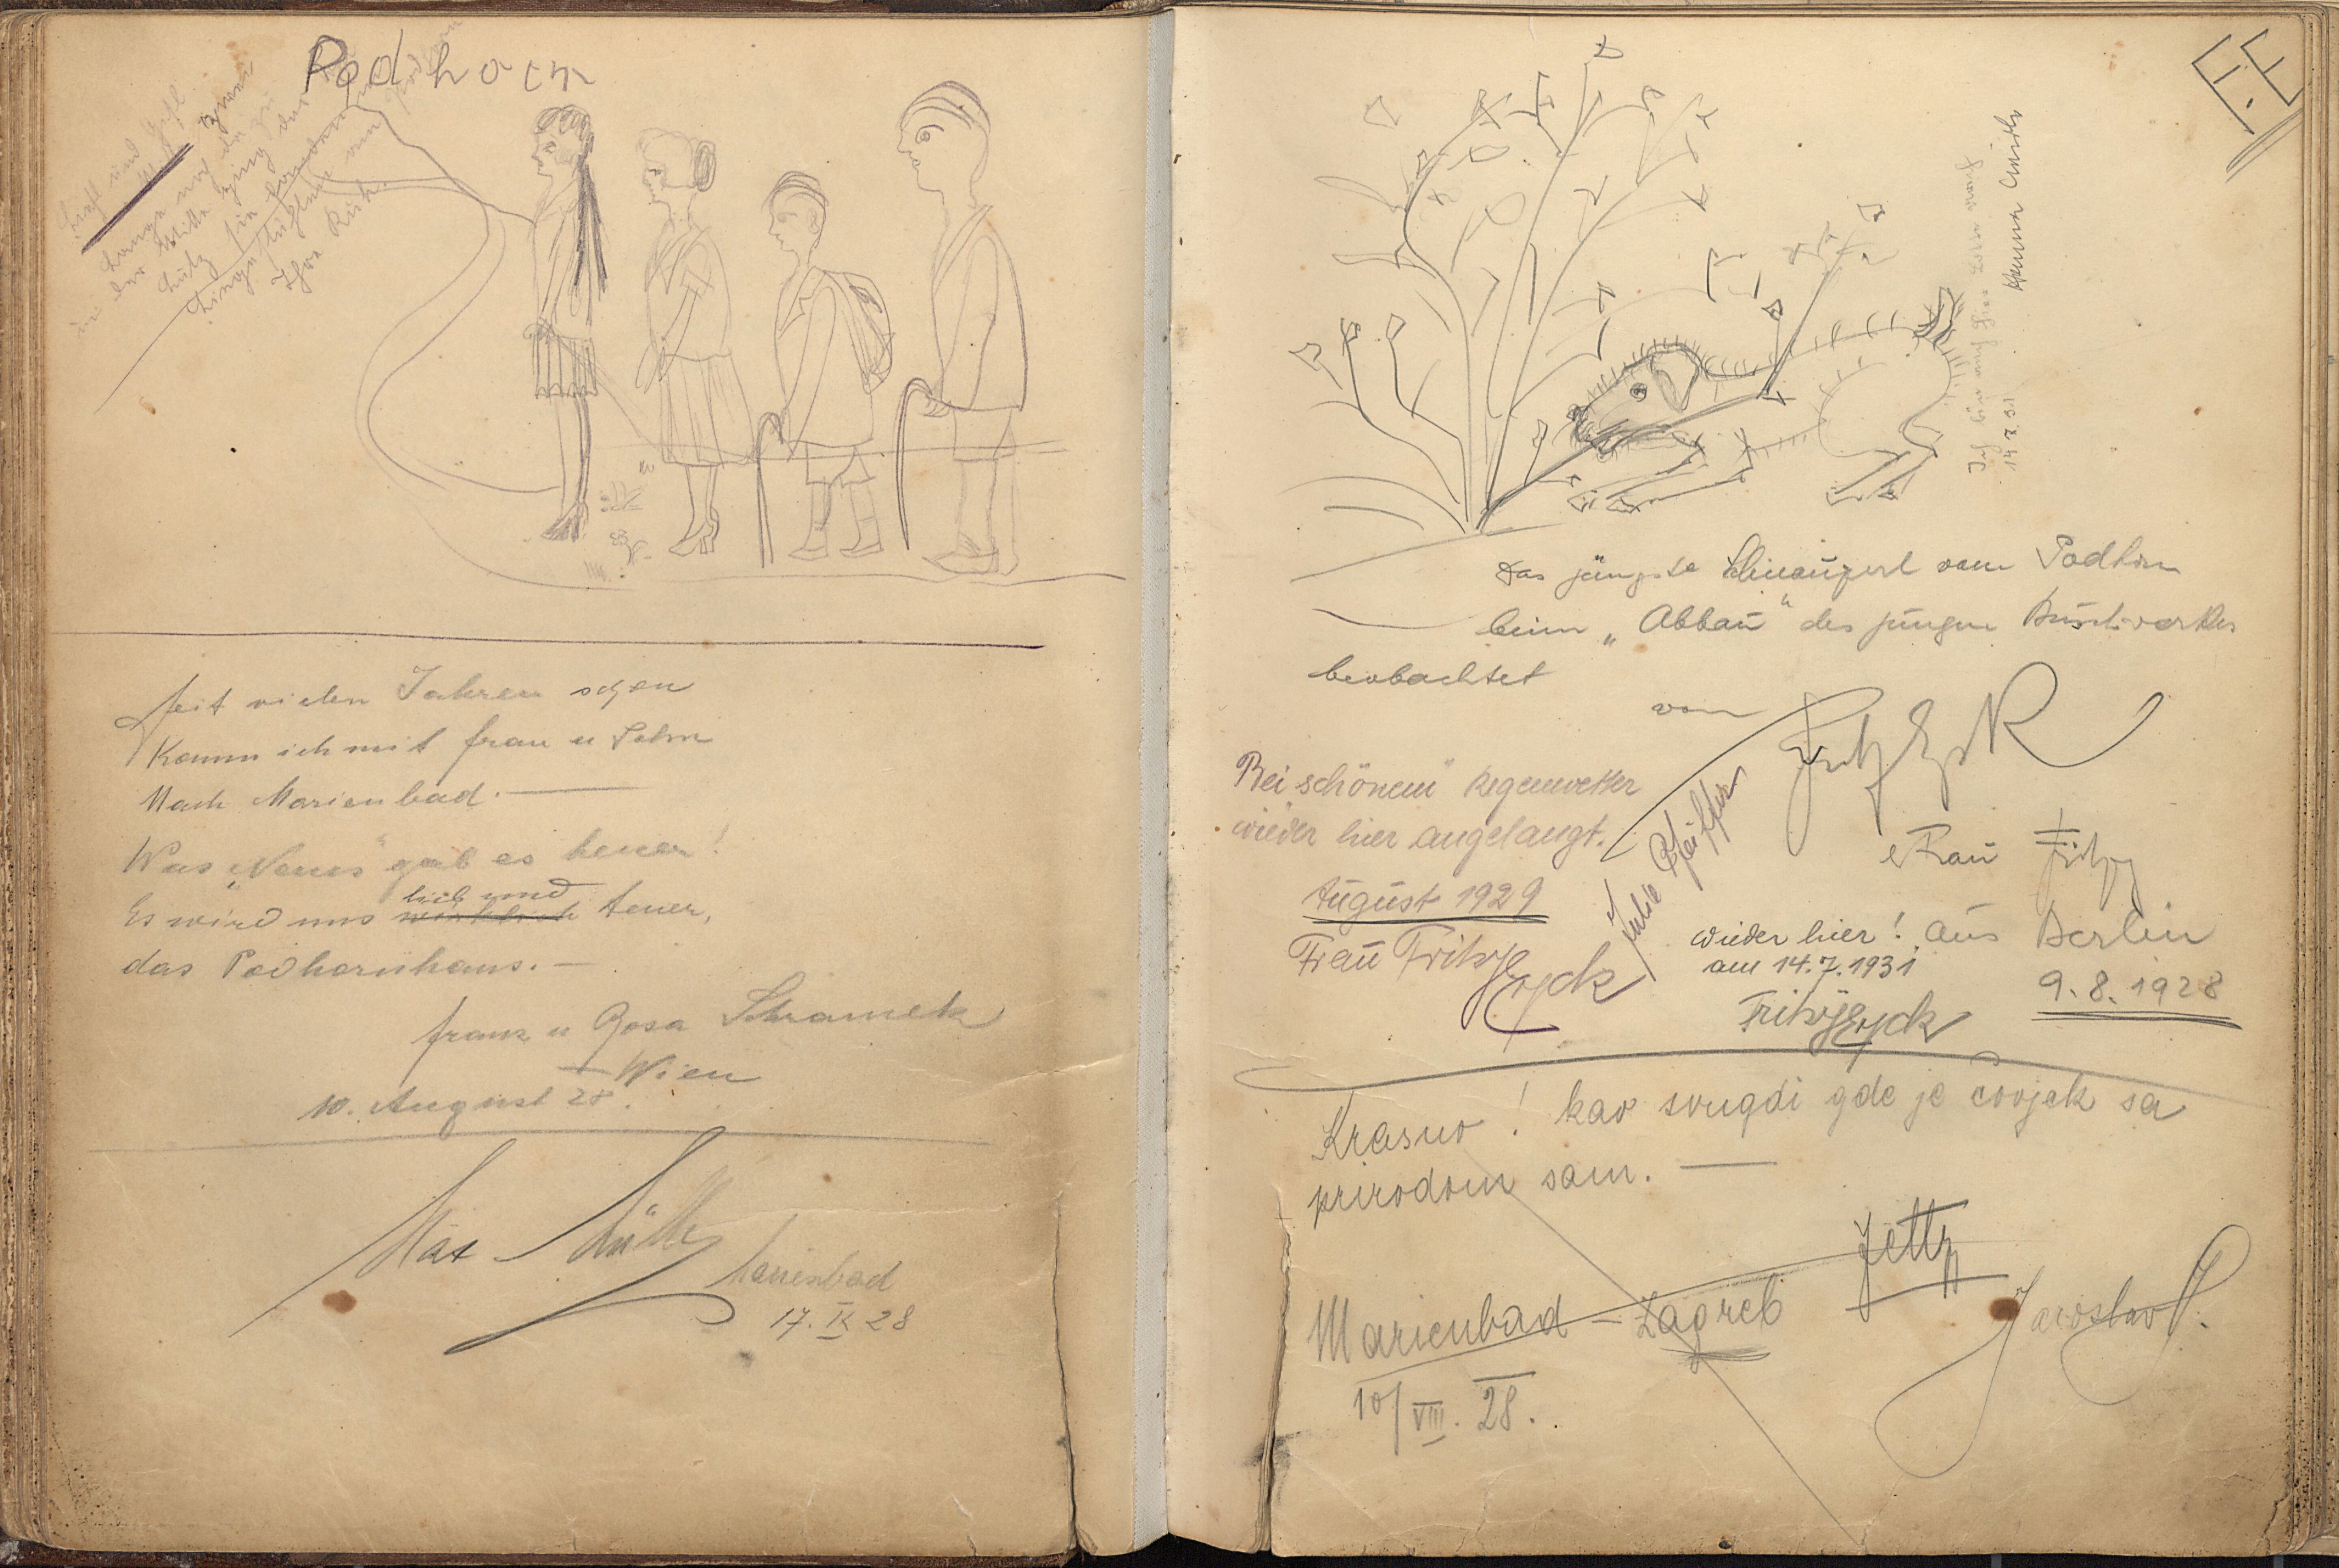 Podhorn
Seit vielen Jahren schon
Komm ich mit Frau u Sohn
Nach Marienbad. —
Was „Neues" gab es heuer!
lieb und
Es wird uns wirklich teuer,
das Podhornhaus. —
Franz u Rosa Schramek
— Wien
10. August 28.
Max Müller
Marienbad
17. IX 28
F.E
Ich bin auch hier
14.7.31
Das jüngste vom Podhorn
beim „Abbau" des jungen Buschwerkes
beobachtet
von
Fritz Eyck
Frau Fritzy
aus Berlin
9.8.1928
Bei „schönem" Regenwetter
wieder hier angelangt.
August 1929
Frau Fritzy Eyck
Julie Pfeiffer
wieder hier!
am 14.7.1931
Fritzy Eyck
Krasno! kao svugdi gde je čovjek sa
prirodom sam. —
Jetty
Jaroslav
Marienbad – Zagreb
10/VIII. 28.